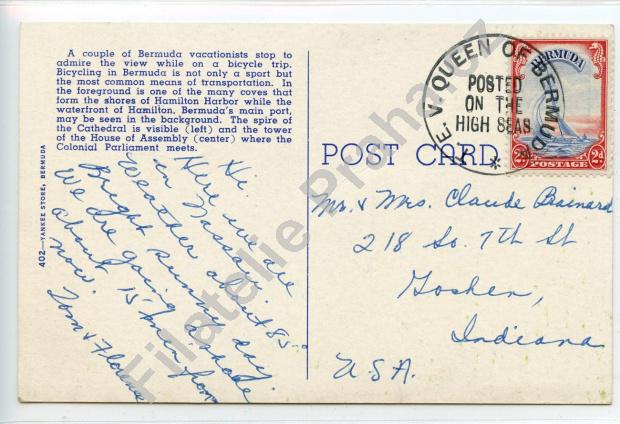 A couple of Bermuda vacationists stop to
admire the view while on a bicycle trip.
Bicycling in Bermuda is not only a sport but
the most common means of transportation. In
the foreground is one of the many coves that
form the shores of Hamilton Harbor, while the
waterfront of Hamilton, Bermuda's main port,
may be seen in the background. The spire of
the Cathedral is visible (left) and the tower
of the House of Assembly (center) where the
Colonial Parliament meets.
402—YANKEE STORE, BERMUDA
Hi.
Here we are
in Nassau.
Weather about 85°
Bright sunny day
We are going ashore
about 15 min from
now.
Tom & Florence
POST CARD
T.E.V. QUEEN OF BERMUDA
POSTED
ON THE
HIGH SEAS
BERMUDA
2d POSTAGE 2d
Mr. & Mrs. Claude Brainard
218 So. 7th St
Goshen,
Indiana
U.S.A.
Filatelie Prohaz